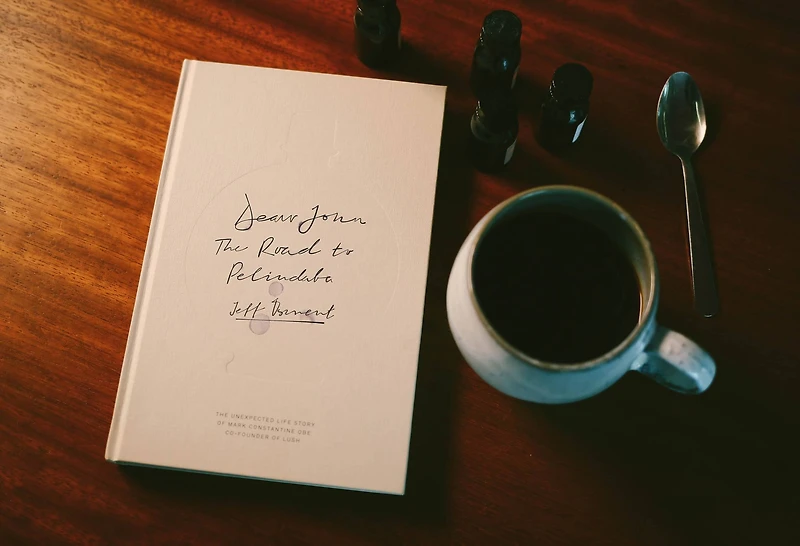 Dear John
The Road to
Pelindaba
Jeff Osment
THE UNEXPECTED LIFE STORY
OF MARK CONSTANTINE OBE
CO-FOUNDER OF LUSH